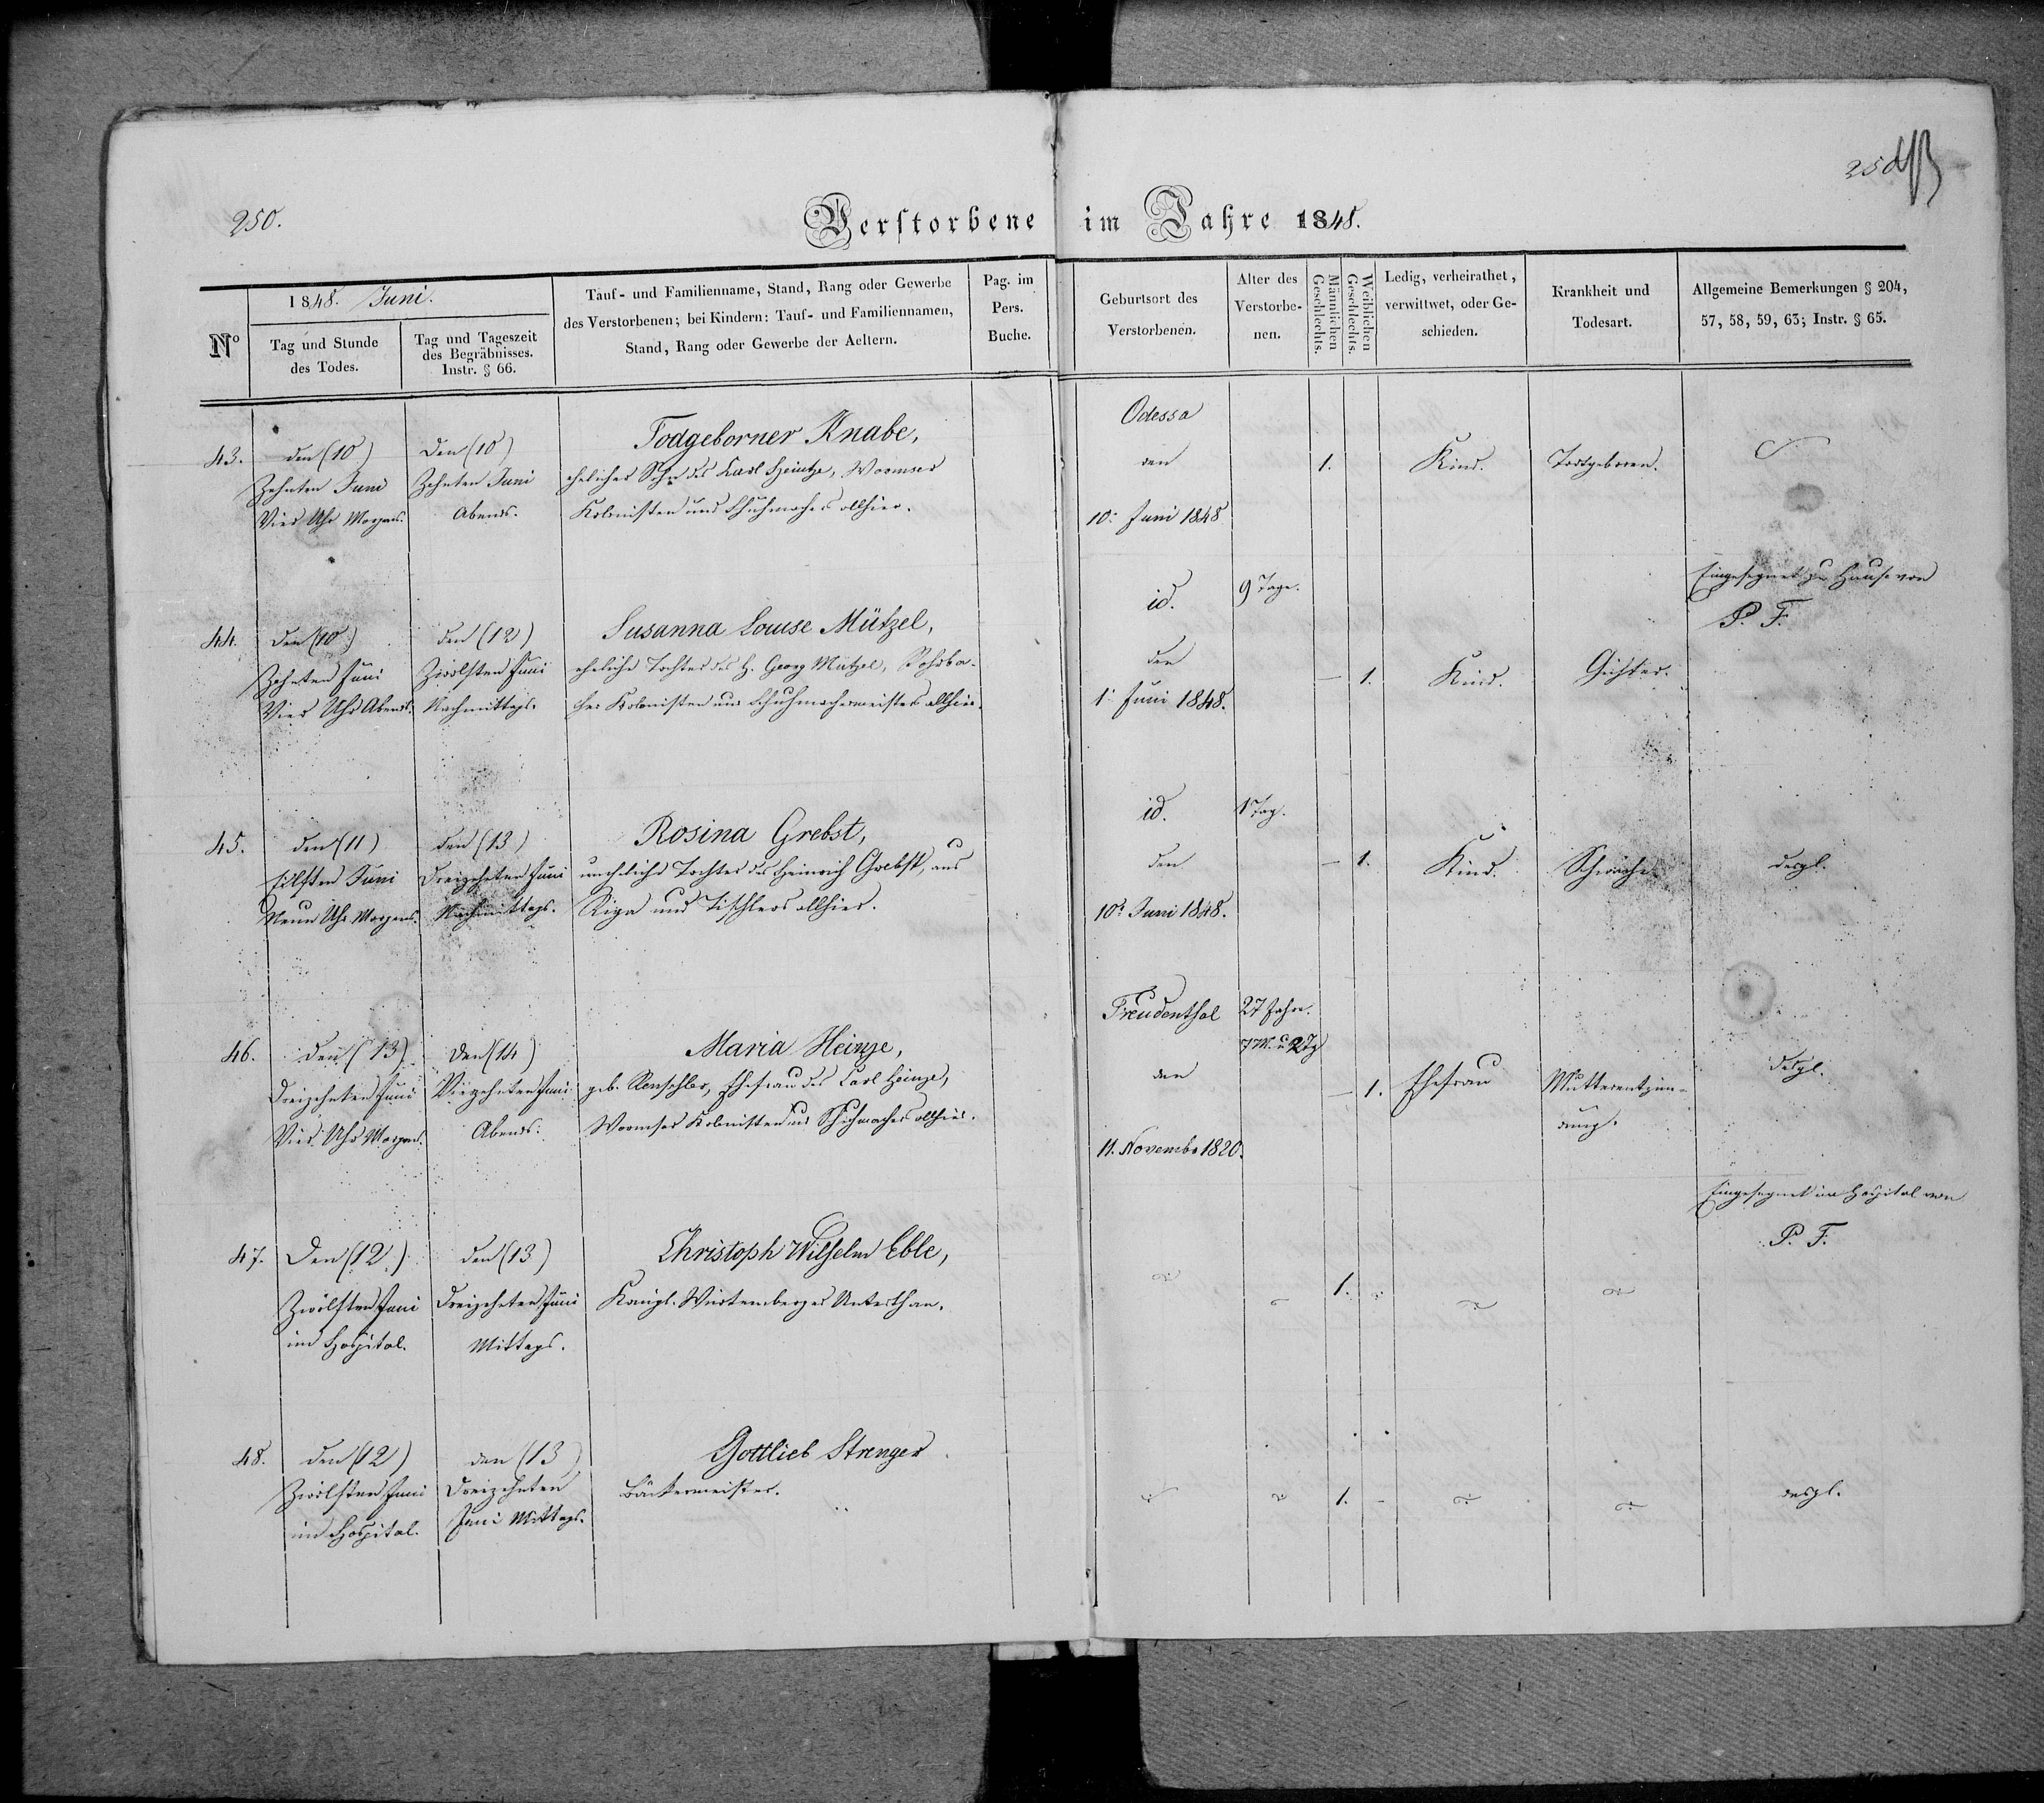 250.
250
Verstorbene im Jahre 1848.
No
1848. Juni.
Tag und Stunde
des Todes.
Tag und Tageszeit
des Begräbnisses.
Instr. § 66.
Tauf- und Familienname, Stand, Rang oder Gewerbe
des Verstorbenen; bei Kindern: Tauf- und Familiennamen,
Stand, Rang oder Gewerbe der Aeltern.
Pag. im
Pers.
Buche.
Geburtsort des
Verstorbenen.
Alter des
Verstorbe-
nen.
Männlichen
Geschlechts.
Weiblichen
Geschlechts.
Ledig, verheirathet,
verwittwet, oder Ge-
schieden.
Krankheit und
Todesart.
Allgemeine Bemerkungen § 204,
57, 58, 59, 63; Instr. § 65.
43.
den (10)
Zehnten Juni
Vier Uhr Morgens.
Den (10)
Zehnten Juni
Abends.
Todgeborner Knabe,
ehelicher Sohn des Karl Heintze, Wormser
Kolonisten und Schuhmachers allhier.
Odessa
den
10. Juni 1848
1.
Kind.
Todtgeboren.
44.
Den (10.)
Zehnten Juni
Vier Uhr Abends.
den (12)
Zwölften Juni
Nachmittags.
Susanna Louise Mützel,
eheliche Tochter des H. Georg Mützel, Rohrba-
cher Kolonisten und Schuhmachermeisters allhier.
id.
den
1. Juni 1848.
9 Tage.
1.
Kind.
Gichter.
Eingesegnet zu Hause von
P. F.
45.
den (11)
Eilften Juni
Neun Uhr Morgens.
den (13)
Dreizehnten Juni
Nachmittags.
Rosina Grebst,
uneheliche Tochter des Heinrich Grebst, aus
Riga und Tischlers allhier.
id.
den
10. Juni 1848.
1 Tag.
1.
Kind.
Schwäche.
desgl.
46.
den (13)
Dreizehnten Juni
Vier Uhr Morgens.
den (14)
Vierzehnten Juni
Abends.
Maria Heinze,
geb. Renschler, Ehefrau des Carl Heinze,
Wormser Kolonisten und Schuhmachers allhier.
Freudenthal
den
11. November 1820.
27 Jahre.
7 M. u. 2 Tg
1.
Ehefrau
Mutterentzün-
dung.
desgl.
47.
Den (12.)
Zwölften Juni
im Hospital.
den (13)
Dreizehnten Juni
Mittags.
Christoph Wilhelm Eble,
Königl. Würtemberger Unterthan.
1.
Eingesegnet im Hospital von
P. F.
48.
den (12)
Zwölften Juni
im Hospital.
den (13)
Dreizehnten
Juni Mittags.
Gottlieb Strenger
Bäckermeister.
1.
desgl.